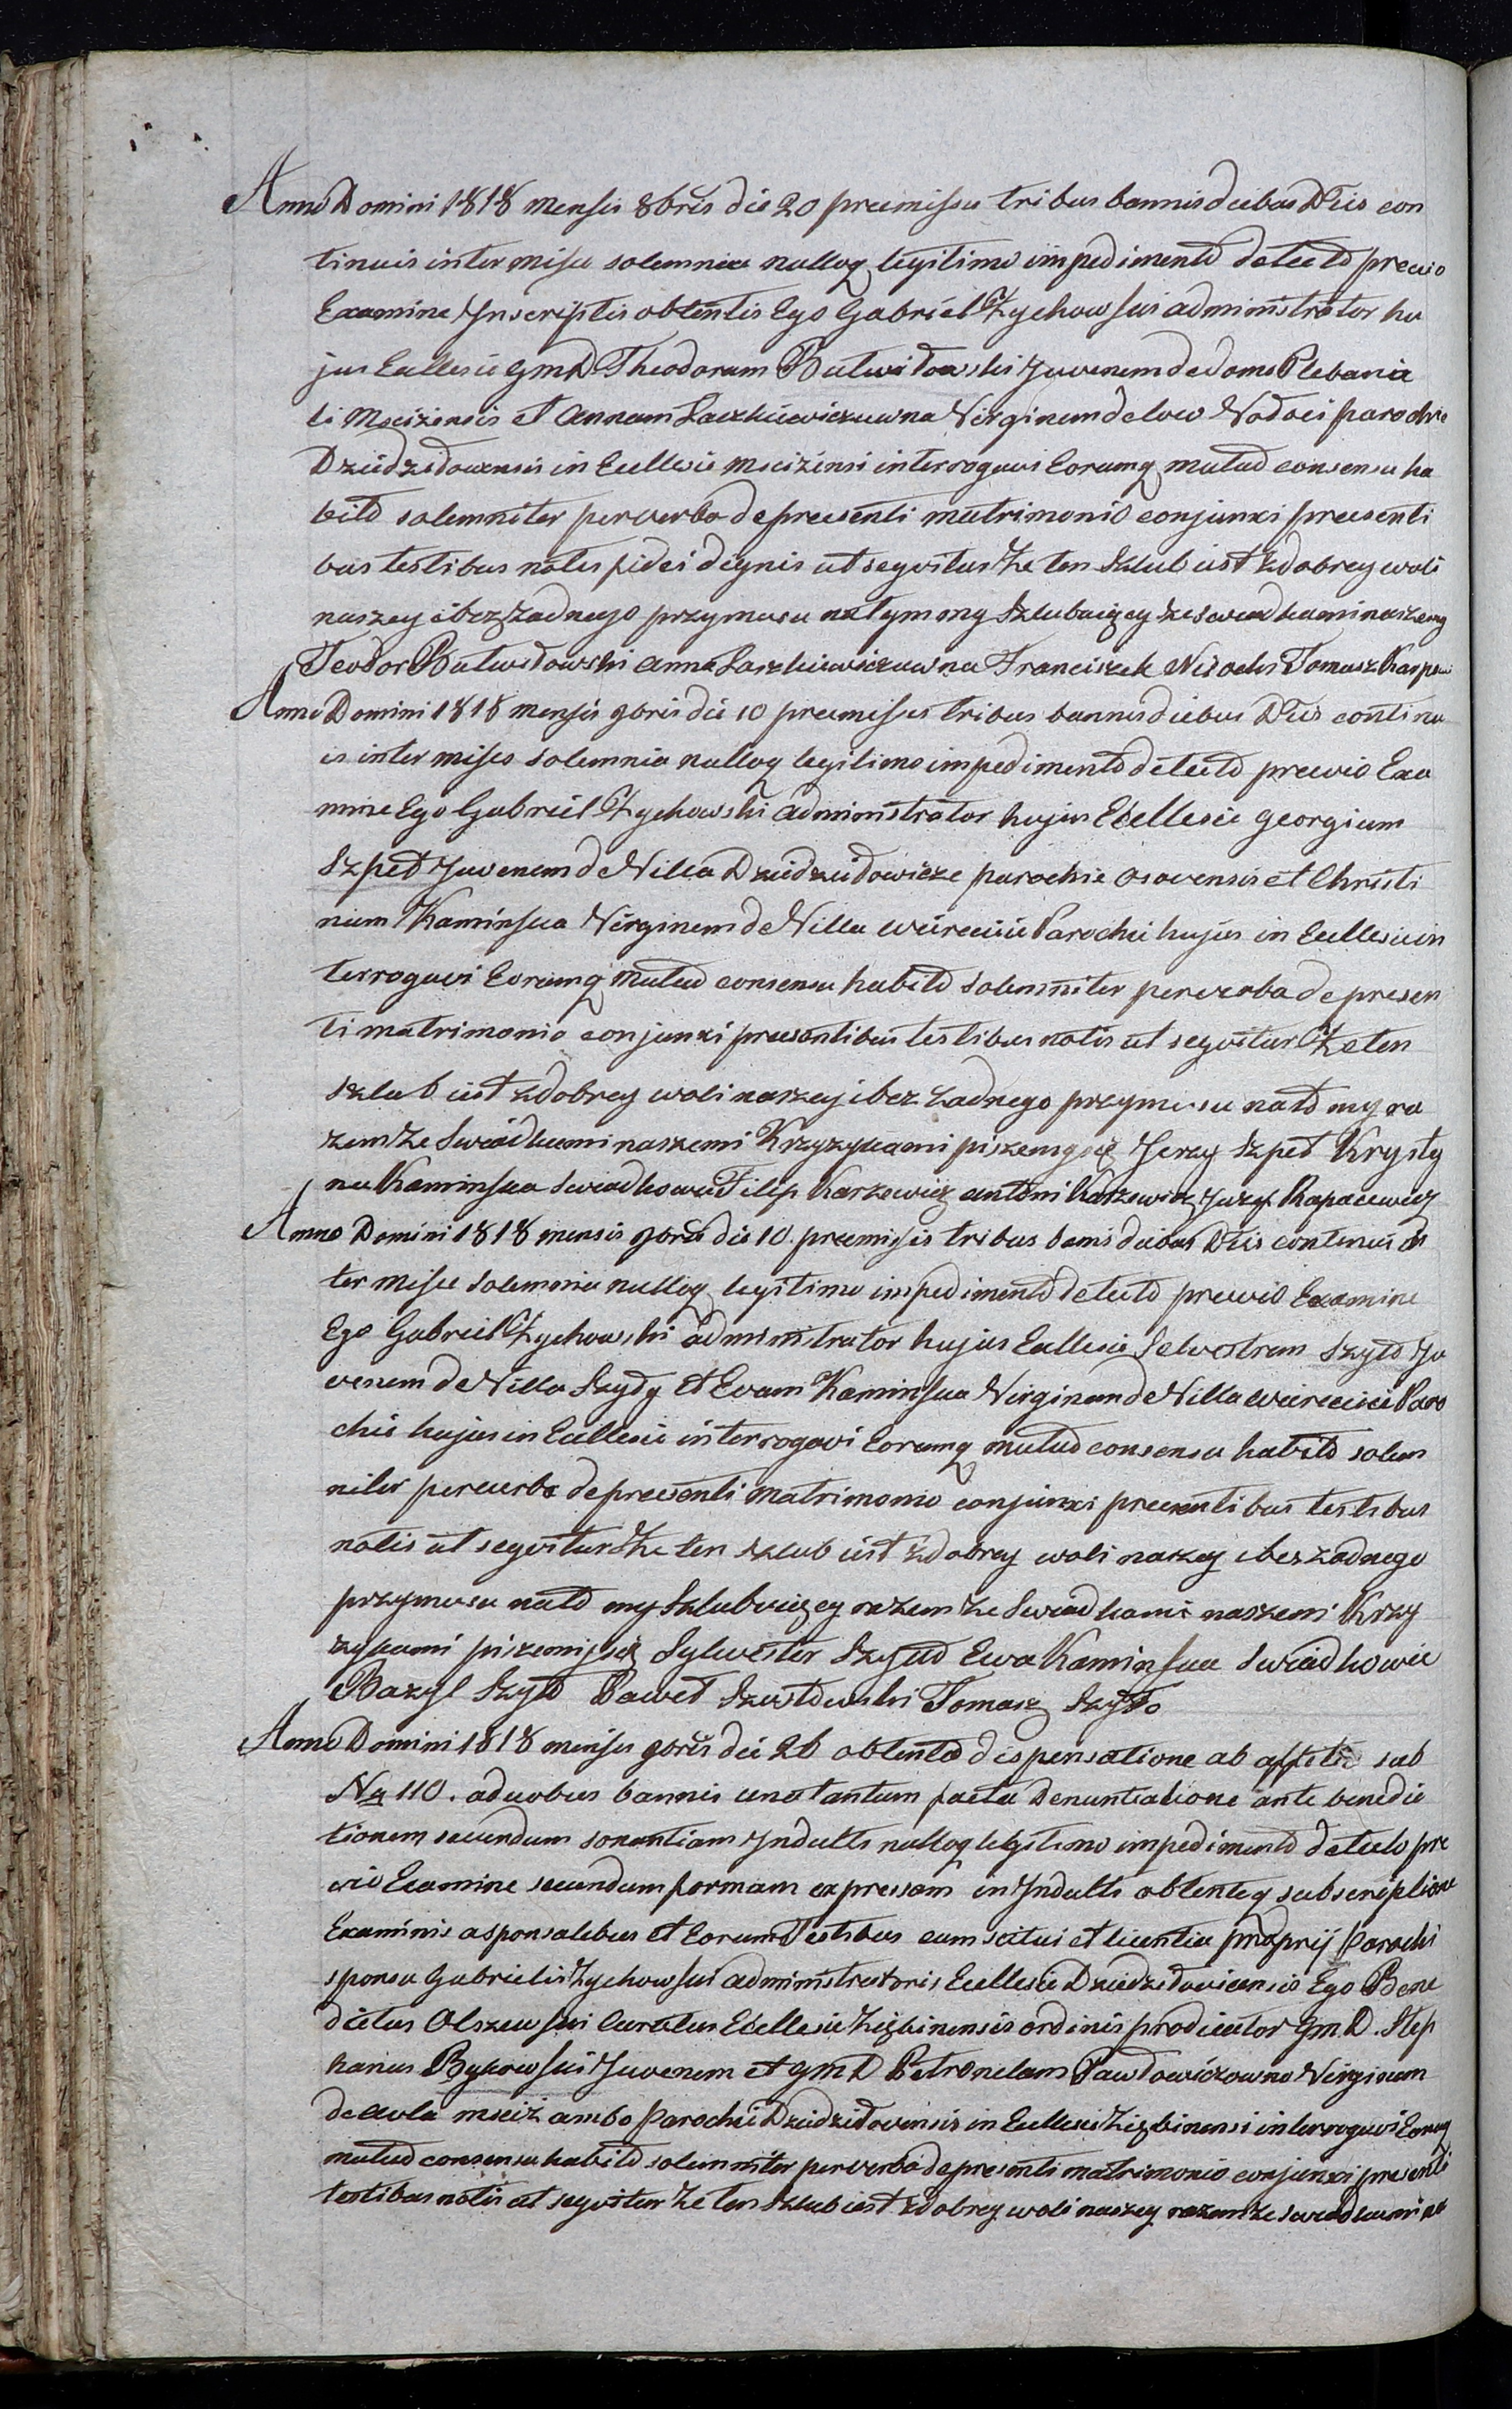 Anno Domini 1818 mensis 8bris die 20 premissis tribus bannis diebus Dtis con
tinuis inter missa solemnia nulloq legitimo impedimento detecto previo
Examine Ynscriptis obtentis Ego Gabriel Zychowski administrator hu
jus Ecllesie GmD Theodorum Butwidowski Juvenem de domo Plebania
li Mscizensis et Annam Laczkiewiczuwna Virginem de loco parochie
Dziedzidowensis in Ecllesie mscizensi interrogavi Eorumq mutuo consensu ha
bito solemniter per verba de presenti matrimonio conjunxi presenti
bus testibus notis fidei dignis ut seqvitur Ze ten Szlub iest z dobrey woli
naszey i bez Zadnego przymusu na tym my Szlubuięcy ze swiadkami naszemy
Teodor Butwidowski Anna Laszkiewiczuwna Franciszek Tomasz
Anno Domini 1818 mensis 9bris die 10 premissis tribus bannis diebus Dtis continu
is inter missa solemnia nulloq legitimo impedimento detecto previo Exa
mine Ego Gabriel Zychowski administrator hujus Ecllesie Georgium
Szpet Juvenem de Villa Dziedzidowicze parochie Osovensis et Christi
nam Kaminska Virginem de Villa Parochie hujus in Ecllesie in
terrogavi Eorumq mutuo consensu habito solemniter per verba de presen
ti matrimonio conjunxi presentibus testibus notis ut seqvitur Ze ten
szlub iest z dobrey woli naszey i bez zadnego przymusu na to my ra
zem ze Swiadkami naszemi Krzyzykami piszemy się Jerzy Szpet Krysty
na Kaminska Swiadkowie Filip Karzewicz Antoni Karzewicz Juzef Rapacewicz
Anno Domini 1818 mensis 9bris die 10 premissis tribus banis diebus Dtis continuis in
ter missa solemnia nulloq legitimo impedimento detecto previo Examine
Ego Gabriel Zychowski administrator hujus Ecllesie Selvestrum Szyło Ju
venem de Villa Szydy et Evam Kaminska Virginem de Villa Paro
chie hujus in Ecllesie interrogavi Eorumq mutuo consensu habito solem
niter per verba de presenti matrimonio conjunxi presentibus testibus
notis ut seqvitur Ze ten szlub iest z dobrey woli naszey i bez zadnego
przymusu na to my Szlubuięcy razem ze Swiadkami naszemi Krzy
zykami piszemy się Sylwester Szyło Ewa Kaminska Swiadkowie
Bazyl Szyło Paweł Tomasz Szyło
Anno Domini 1818 mensis 9bris die 26 obtenta dispensatione ab sub
No 110. a duobus bannis una tantum facta Denuntiatione ante benedic
tionem secundum sonantiam Yndulti nulloq legitimo impedimento detecto pre
vio Examine secundum formam expressam in Yndulti obtenteq subscriptione
Examinis a sponsalibus et Eorum Testibus cum scitu et licentia proprij Parochi
sponsa Gabrielis Zychowski administratoris Ecllesie Dziedzidovicensis Ego Bene
dictus Olszewski Curatus Ecllesie Ziębinensis ordinis prodicator GmD. Step
hanus Bykowski Juvenem et GmD Petronelam Pawłowiczowno Virginem
de Aula msciz ambo Parochie Dziedzidovensis in Ecllesie Ziębinensi interrogavi Eorumq
mutuo consensu habito solemniter per verba de presenti matrimonio conjunxi presenti
testibus notis ut seqvitur Ze ten Szlub iest z dobrey woli naszey razem ze swiadkami